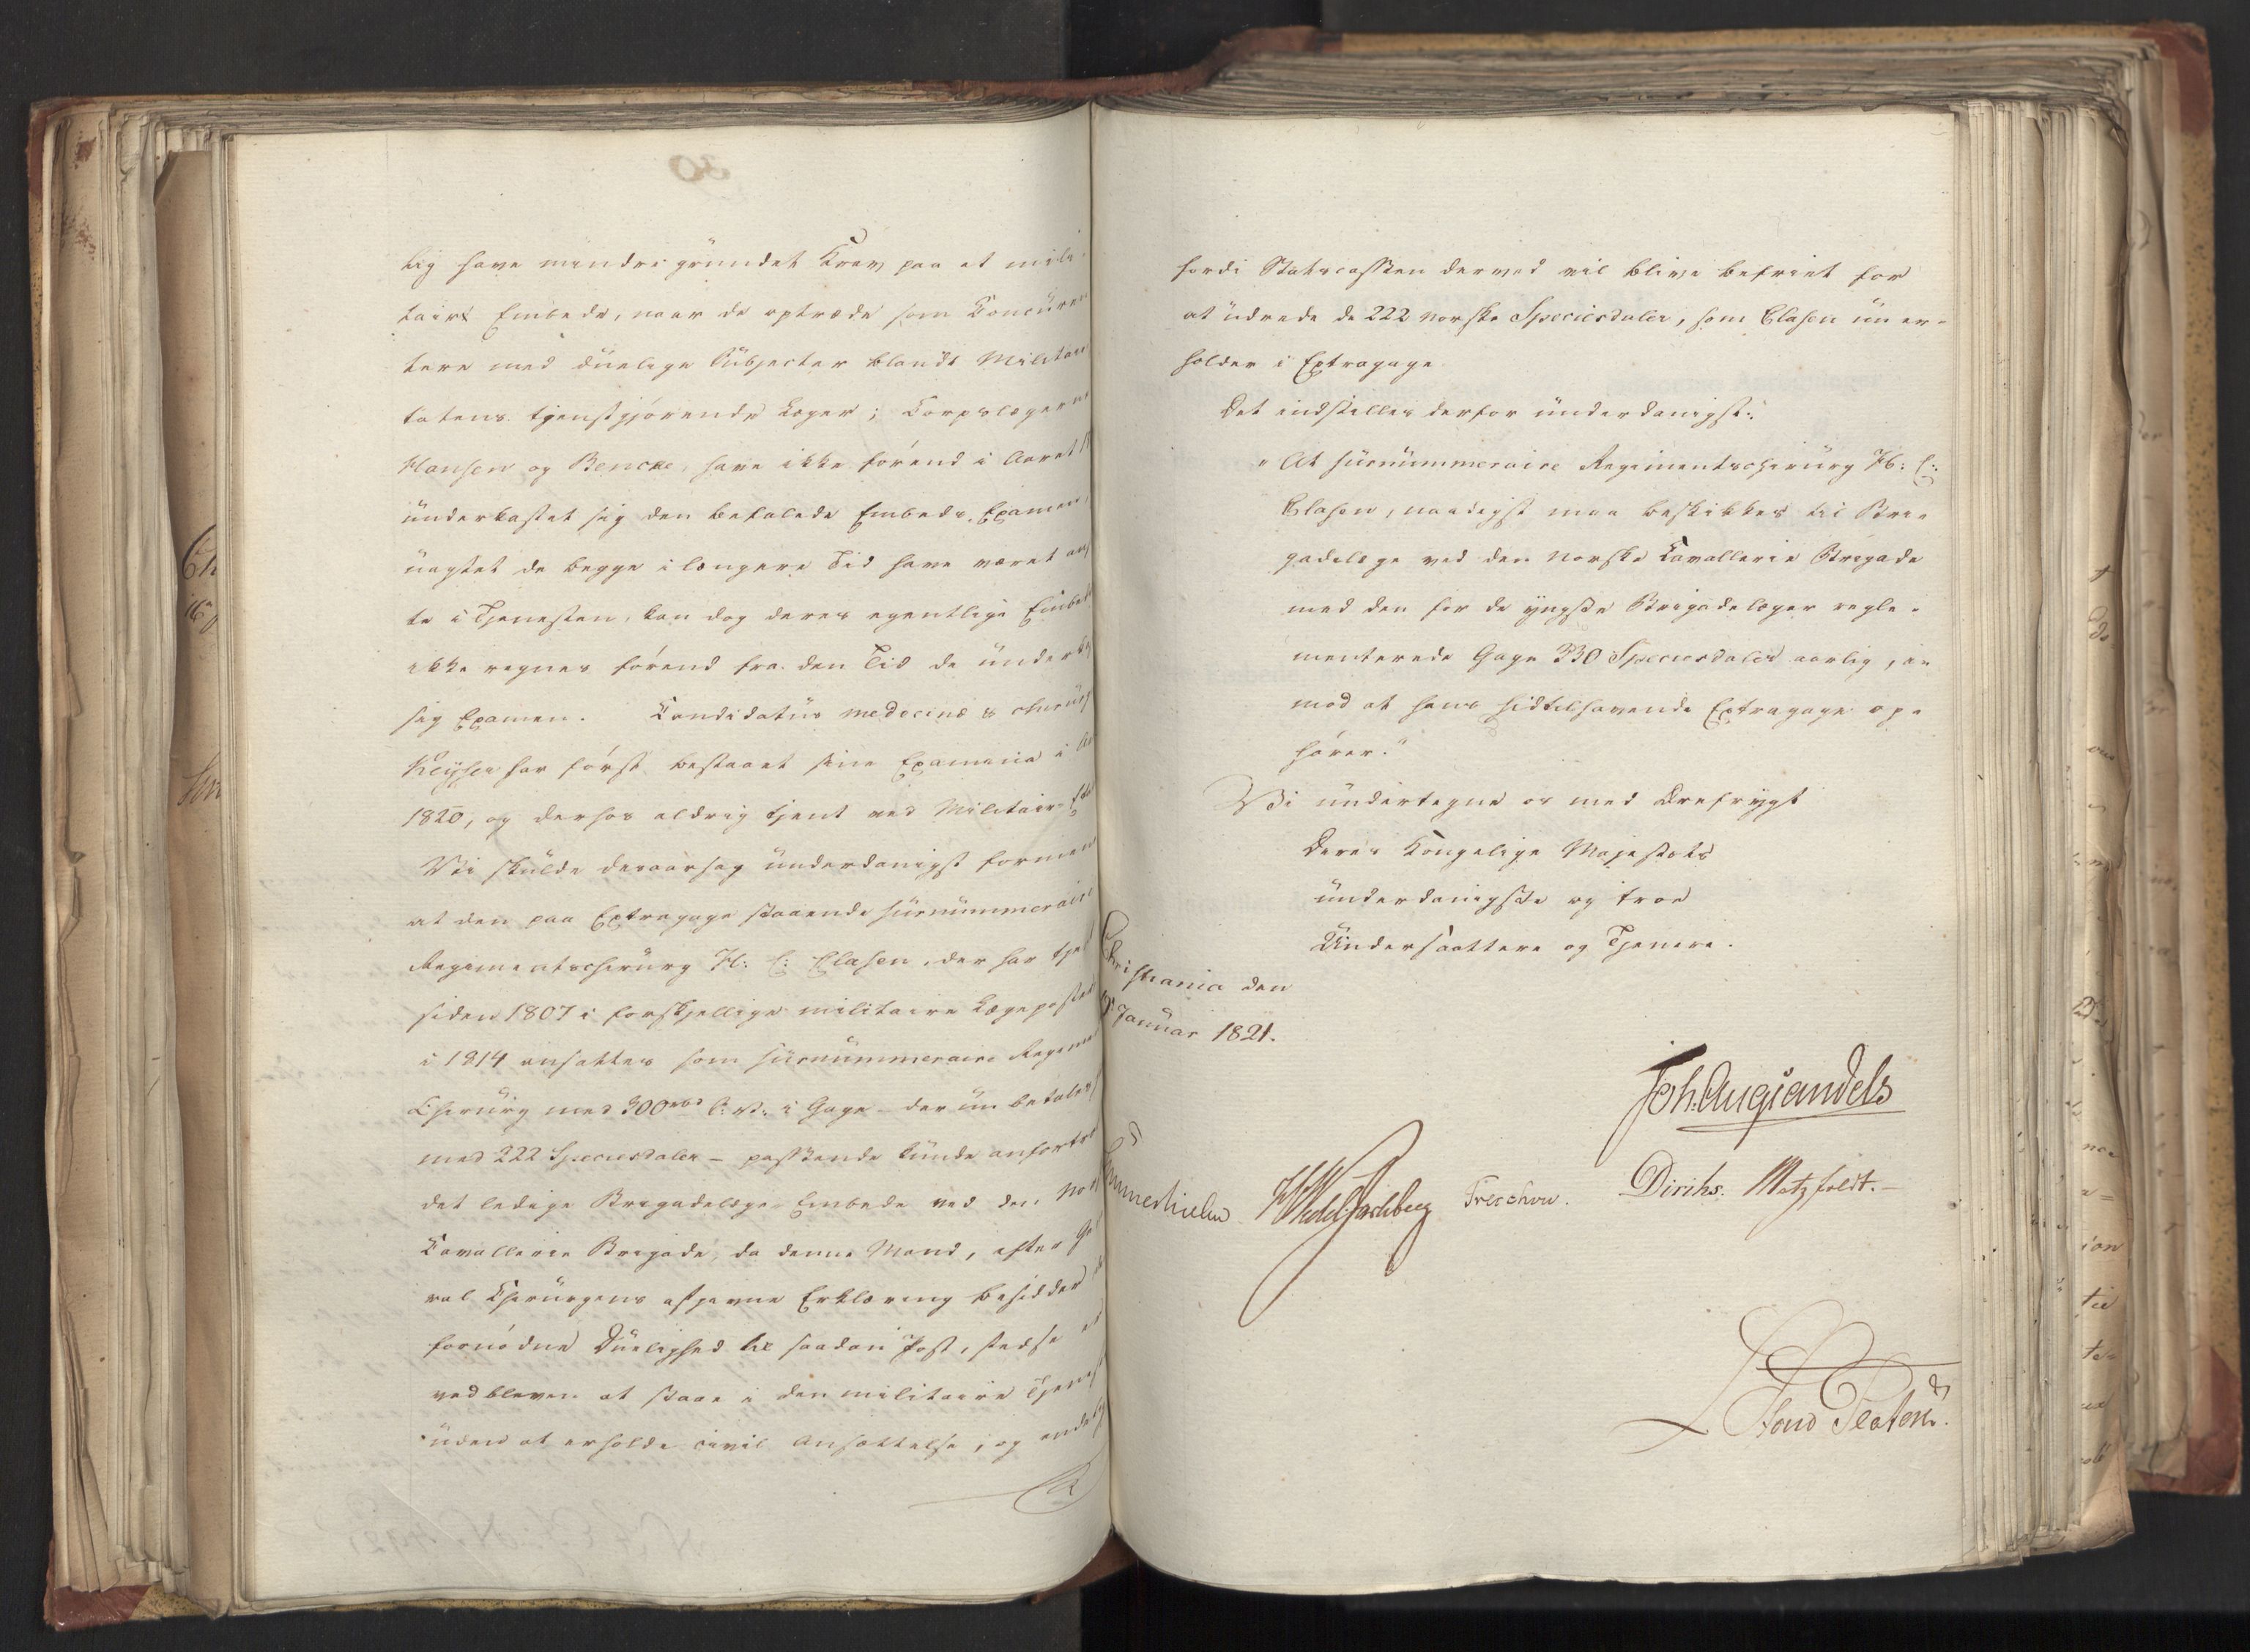 tig have mindre grundet Krav paa et mili-
tairt Embede, naar de optræde som Concuren-
tere med duelige Subjecter blandt Militair
tatens tjenstgjørende Læger; Corpslægerne
Hansen og Bencke, have ikke førend i Aaret
underkastet sig den befalede Embeds-Examen,
uagtet de begge i længere Tid have været an
te i Tjenesten, kan dog deres egentlige Embed
ikke regnes førend fra den Tid de underk
sig Examen. Candidatus medecinæ & chirurg
Keyser har først bestaaet sine Examina i Aa
1820, og derhos aldrig tjent ved Militair-Eta
Vi skulde deraarsag underdanigst formene
at den paa Extragage staaende surnummeraire
Regimentschirurg H: C: Clasen, der har tje
siden 1807 i forskjellige militaire Lægeposter
i 1814 ansattes som surnummeraire Regiments
Chirurg med 300 rbd S. V. i Gage - der nu betales
med 222 Speciesdaler - passende kunde anfortroe
det ledige Brigadelæge-Embede ved den Nor
Cavallerie Brigade, da denne Mand, efter Ge
ral Chirurgens afgivne Erklæring besidder
fornødne Duelighed til saadan Post, stedse
vedbleven at staae i den militaire Tjenest
uden at erholde civil Ansættelse; og endelig
fordi Statscassen derved vil blive befriet for
at udrede de 222 norske Speciesdaler, som Clasen nu er-
holder i Extragage
Det indstilles derfor underdanigst:
"At surnummeraire Regimentschirurg H: C:
Clasen, naadigst maa beskikkes til Bri-
gadelæge ved den norske Cavallerie Brigade
med den for de yngste Brigadelæger regle-
menterede Gage 330 Speciesdaler aarlig, i-
mod at hans hidtilhavende Extragage op-
hører."
Vi undertegne os med Ærefrygt
Deres Kongelige Majestæts
underdanigste og troe
Undersaattere og Tjenere.
Christiania den
Januar 1821.
Joh. Aug Sandels
Sommerhielm HWedel Jarlsberg Treschow. Diriks. Motzfeldt.
von Platen.